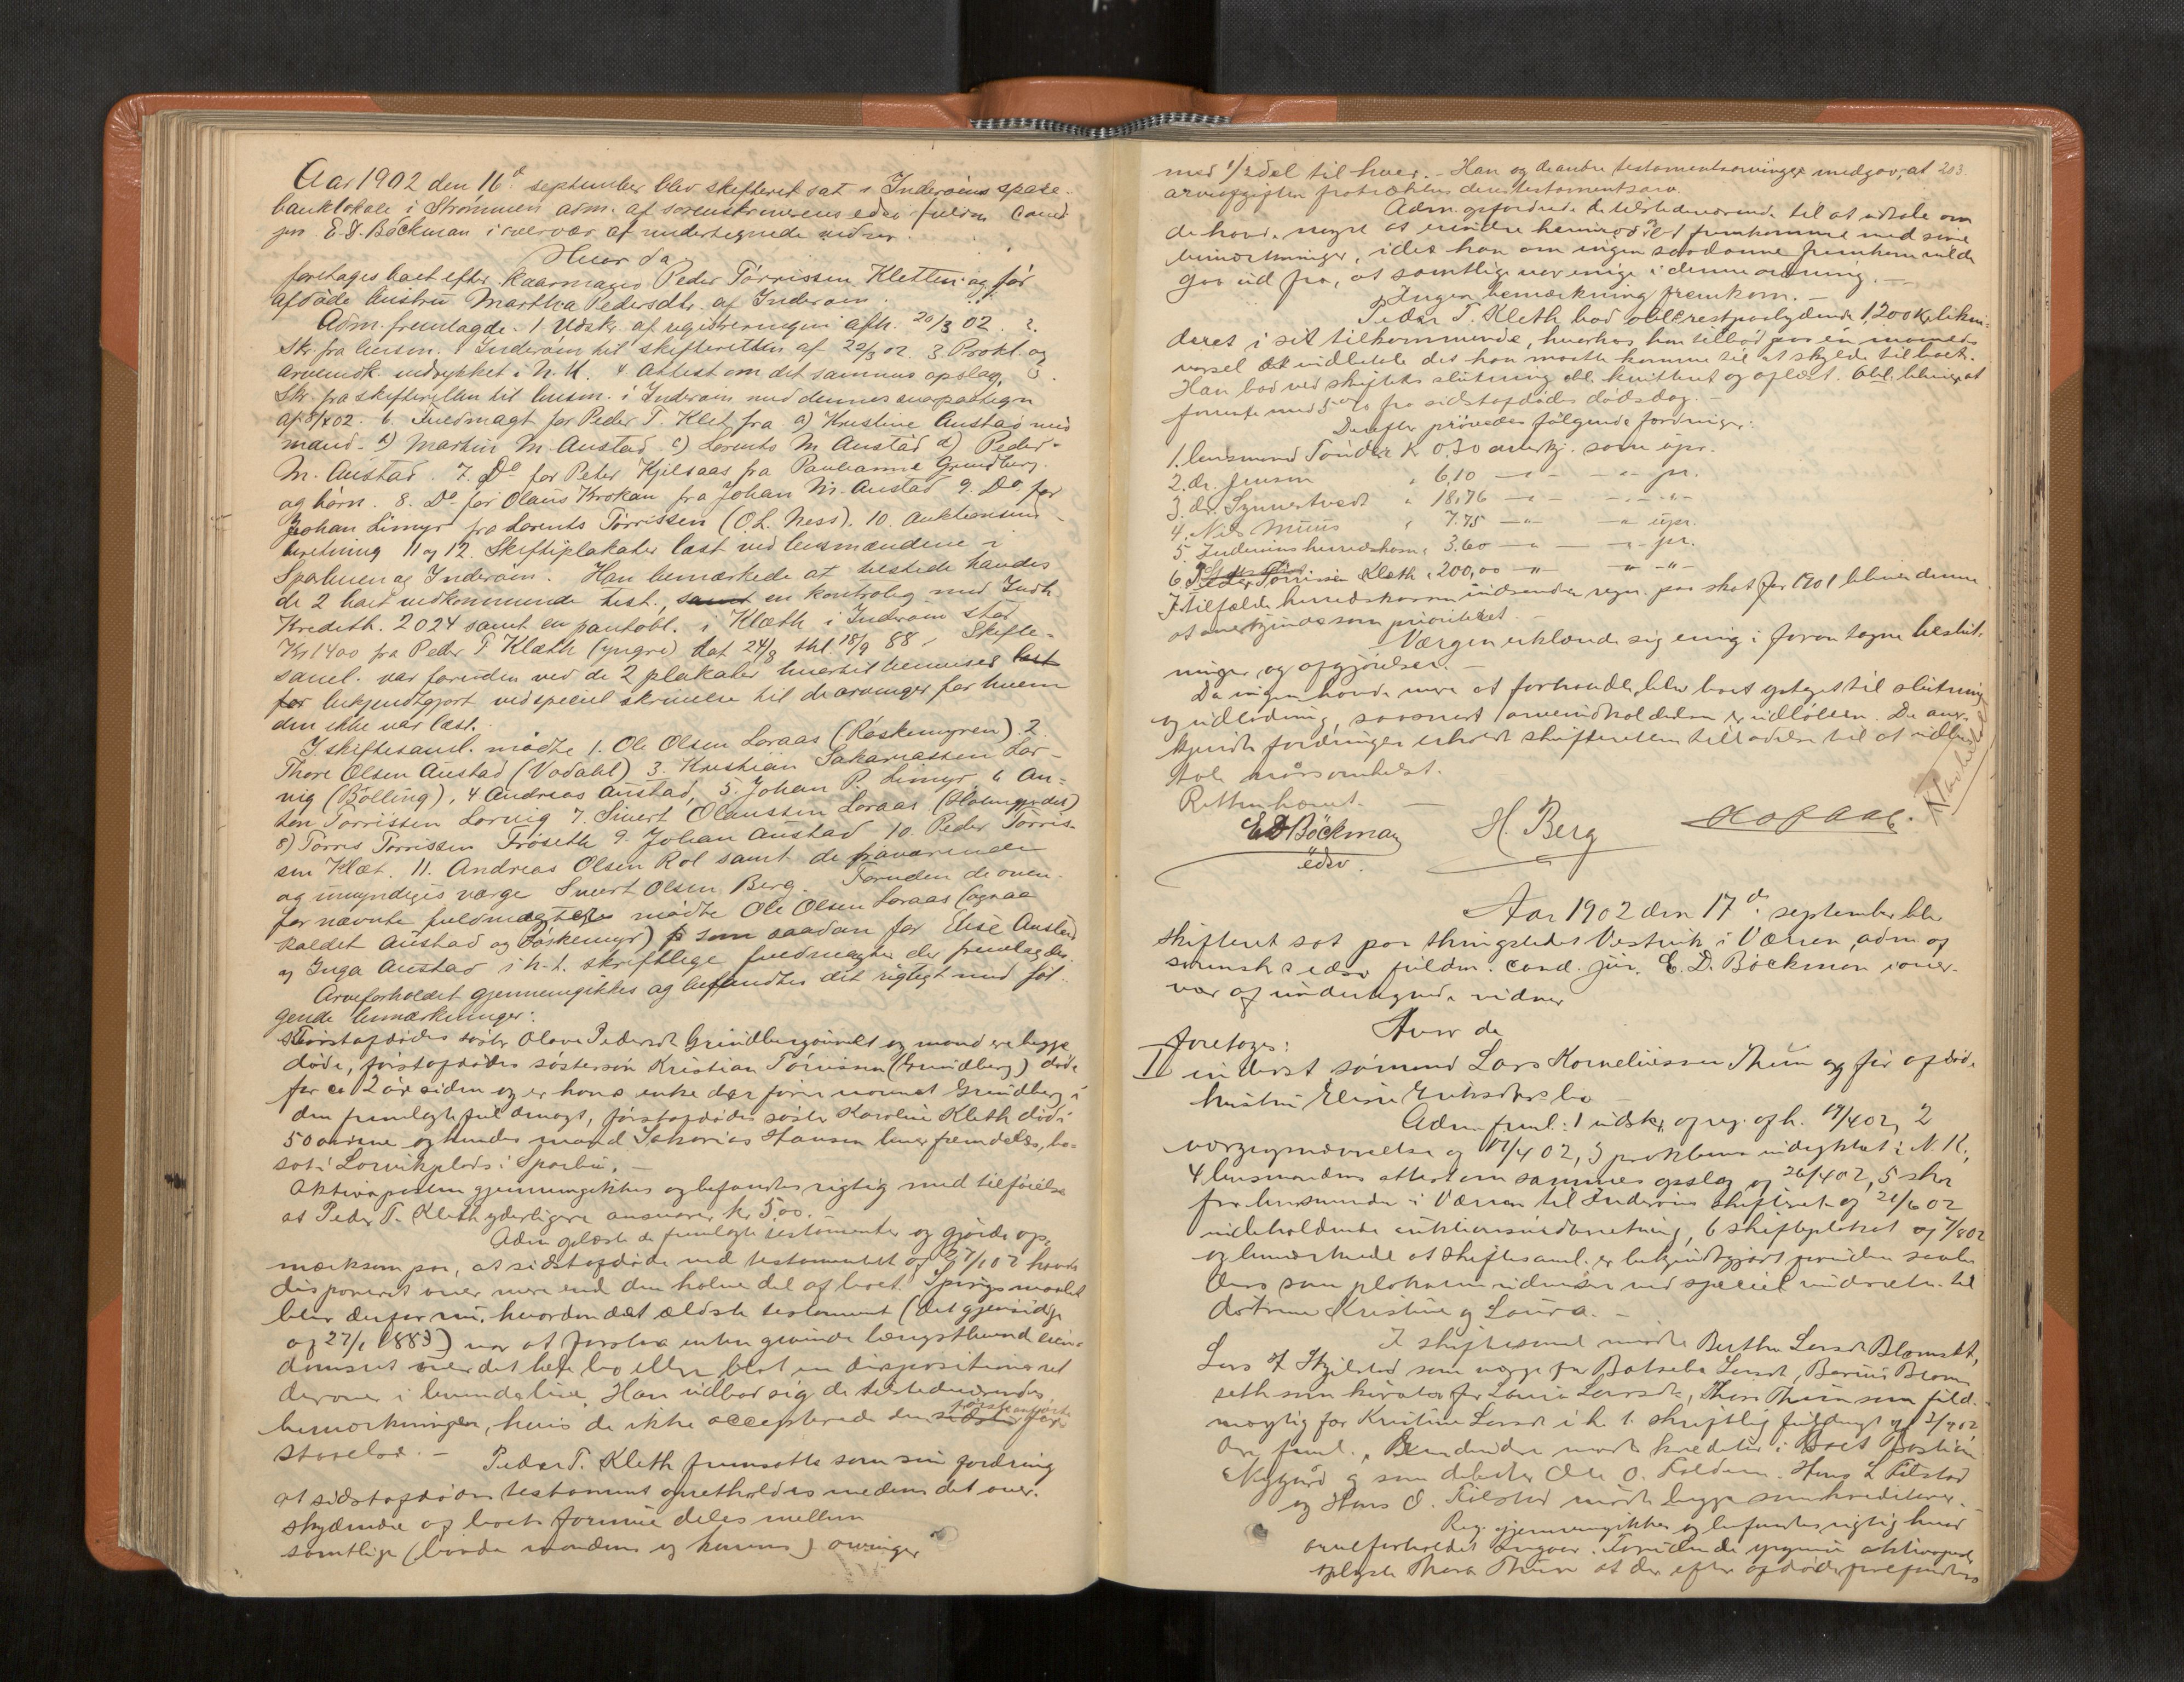 Aar 1902 den 16d september blev skifteret sat i Inderøens spare-
banklokale i Strømmen adm. af sorenskriverens edsv. fuldm. cand.
jur. E. D. Böckman i overvær af undertegnede vidner.
Hvor da
foretages boet efter kaarmand Peder Tørrissen Kletten og før
afdøde hustru Martha Pedersdtr. af Inderøen.
Adm. fremlagde. 1 Udskr. af registreringen afh. 20/3 02. 2.
Skr. fra lensm. i Inderøen til skifteretten af 22/3 02. 3 Prokl. og
arveindk. indrykket i N. K. 4 Attest om det sammes opslag, 5.
Skr. fra skifteretten til lensm. i Inderøen med dennes
af 8/4 02. 6. Fuldmagt for Peder T. Klet fra a) Kristine Austad med
mand. b) Martin M. Austad c) Lorents M. Austad d) Peder
M. Austad. 7. Do for Peter Kjelsaas fra Paulianne Grindberg
og børn. 8. Do for Olaus Krokan fra Johan M. Austad 9. Do. for
Johan Limyr fra Lorents Tørrissen (O. L. Ness). 10. Auktionsind-
beretning 11 og 12. Skifteplakater læst ved lensmændene i
Sparbuen og Inderøen. Han bemærkede at tilstede havdes
de 2 boet vedkommende test., samt en kontrabog med Indh.
Kreditk. 2024 samt en pantobl. i Klæth i Inderøen stor
Kr 1400 fra Peder T Klæth (yngre) dat 24/8 thl. 18/9 88. Skifte-
saml. var foruden ved de 2 plakater hvortil henvises læst
for bekjendtgjort ved speciel skrivelse til de arvinger for hvem
den ikke var læst.
I skiftesaml. mødte 1. Ole Olsen Loraas (Røskemyren). 2.
Thore Olsen Austad (Vodahl) 3. Kristian Sakariassen Lor-
vig (Bölling), 4 Andreas Austad, 5. Johan P. Limyr, 6 An-
ton Tørrissen Lorvig 7. Sivert Olaussen Loraas
8) Tørris Tørrissen Frøseth 9. Johan Austad 10. Peder Tørris-
sen Klæt. 11. Andreas Olsen Rol samt de fraværende
og umyndiges værge Sivert Olsen Berg. Foruden de oven-
for nævnte fuldmægtige mødte Ole Olsen Loraas (ogsaa
kaldet Austad og Røskemyr) som saadan for Elise Austad
og Inga Austad i h. t. skriftlige fuldmagter der fremlagdes.
Arveforholdet gjennemgikkes og befandtes det rigtigt med føl-
gende bemærkninger:
Førstafdødes søster Olava Pedersdt Grindberg og mand er begge
døde, førstafdødes søstersøn Kristian Tørrissen (Grindberg) døde
for ca 2 år siden og er hans enke der fører navnet Grindberg i
den fremlagte fuldmagt, førstafdødes søster Karoline Kleth døde i
50 aarene og hendes mand Sakarias Hansen lever fremdeles, bo-
sat i Lorvikplads i Sparbu. —
Aktivaposten gjennemgikkes og befandtes rigtig med tilføielse
at Peder T. Kleth yderligere ansvarer kr 5,00.
Adm. oplæste de fremlagte testamenter og gjorde op-
mærksom paa, at sidstafdøde ved testamentet af 27/1 02 havde
disponeret over mere end den halve del af boet. Spørgsmaalet
blev derfor nu, hvordan det ældste testament (det gjensidige
af 27/1 1883) var at forstaa enten givende længstlevende eien-
domsret over det hele bo eller blot en dispositionsret
derover i levende live. Han udbad sig de tilstedeværendes
bemærkninger, hvis de ikke accepterede den
førstanførte
staaelse. —
Peder T. Kleth fremsatte som sin fordring
at sidstafdødes testament opretholdes medens det over-
skydende af boets formue deles mellem
samtlige (baade mandens og konens) arvinger
203
med 1/2 del til hver. — Han og de andre testamentsarvinger medgav, at
arveafgiften fratrækkes deres testamentsarv.
Adm. opfordrede de tilstedeværende til at udtale om
de havde noget at erindre herimod til at fremkomme med sine
bemærkninger, idet han om ingen saadanne fremkom vilde
gaa ud fra, at samtlige var enige i denne ordning. —
Ingen bemærkning fremkom. —
Peder T. Kleth bad obl. restpaalydende 1,200 Kr likvi-
deret i sit tilkommende, hvorhos han tilbød paa én maaneds
varsel at indbetale det han maatte komme til at skylde til boet.
Han bad ved skiftets slutning obl. kvitteret og aflæst. Obl. bliver at
forrente med 5 % fra sidstafdødes dødsdag. —
Derefter prøvedes følgende fordringer:
1. lensmand Tønder K 0,30 anerkj. som upr.
2. dr. Jenssen " 6,10 — " — — " — pr.
3. dr. " 18,76 — " — — " —
4. Nils Muus " 7.75 — " — — " — upr.
5. Inderøens herredskasse " 3.60 — " — — " — pr.
6 Peder Tørrissen Kleth " 200,00 — " — " — " —
I tilfælde herredskassen indsender regn. paa skat for 1901 bliver denne
at anerkjende som prioriteret. —
Værgen erklærede sig enig i foran tagne beslut-
ninger og opgjørelser. —
Da ingen havde mere at forhandle, blev boet optaget til slutning
og udlodning, saasnart arveindkaldelsen er udløben. De aner-
kjendte fordringer erholdt skifteretten tilladelse til at udbe-
tale når somhelst.
Retten hævet. —
E D Böckman
edsv.
H. Berg
Aar 1902 den 17de september blev
skifteret sat paa thingstedet Vestvik i Værran, adm. af
sorenskr's edsv. fuldm. cand. jur. E. D. Böckman i over-
vær af undertegnede vidner
Hvor da
foretoges:
I inderst sømand Lars Korneliussen Thun og før afdøde
hustru Elise Eriksdtrs bo —
Adm. freml.: 1 udskr. af reg. afh. 19/4 02, 2
værgeopnævnelse af 19/4 02, 3 proklama indrykket i N. K.,
4 lensmandens attest om sammes opslag af 26/4 02, 5 skr.
fra lensmanden i Værran til Inderøens skifteret af 21/6 02
indeholdende auktionsindberetning, 6 skifteplakat af 7/8 02
og bemærkede at skiftesaml. er bekjendtgjort foruden
som plakaten udviser ved speciel underretn. til
døtrene Kristine og Laura. —
I skiftesaml mødte Berthe Larsdt
Lars som værge for Batseba Larsdt,
som kurator for Laura Larsdt, Thora Thun som fuld-
mægtig for Kristine Larsdt i h. t. skriftlig fuldmagt af
der freml. Endvidere mødte kreditor i boet Bastian
Nygård og som debitor Ole O. Hans L Tilstad
og Hans O. Tilstad mødte begge som kreditorer. —
Reg. gjennemgikkes og befandtes rigtig hvad
arveforholdet angaar. Foruden de opgivne aktivaposter
oplyste Thora Thun at der efter afdøde forefindes